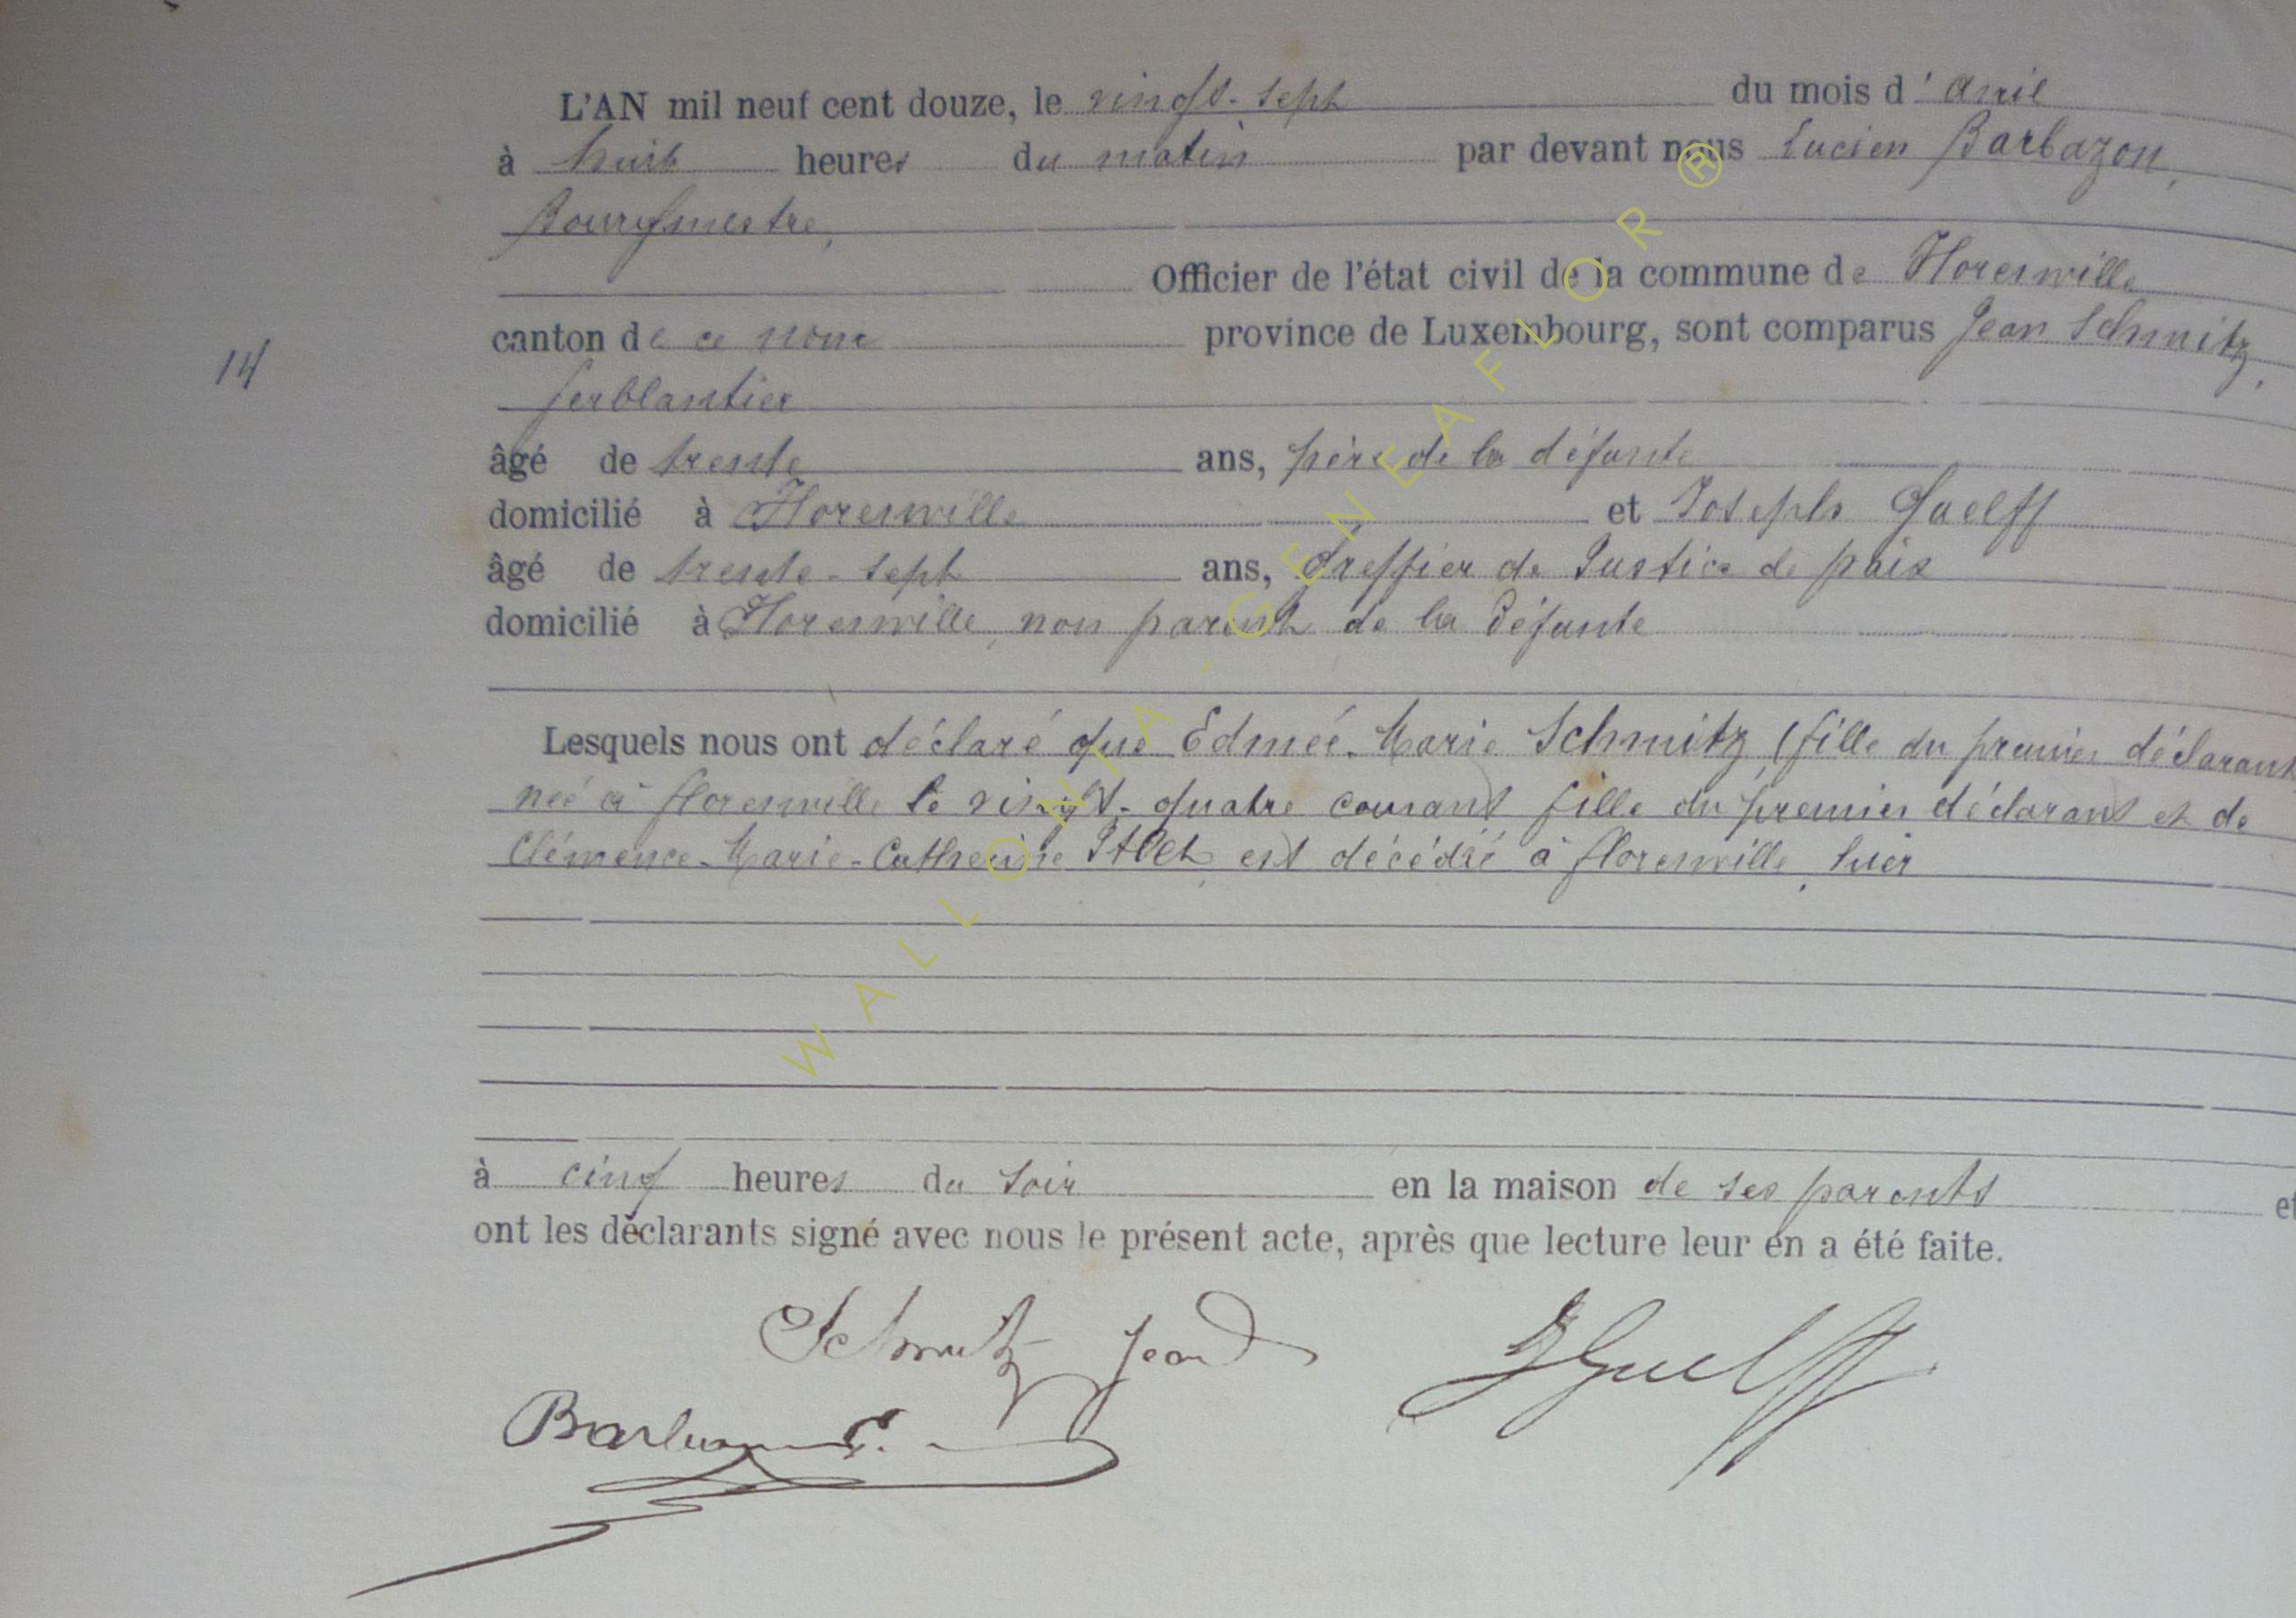 L'AN mil neuf cent douze, le vingt-sept du mois d'avril
à huit heures du matin par devant nous Lucien Barbazon,
Bourgmestre,
Officier de l'état civil de la commune de Florenville
canton de ce nom province de Luxembourg, sont comparus Jean Schmitz,
14
ferblantier
âgé de trente ans, père de la défunte
domicilié à Florenville et Joseph Guelff
âgé de trente-sept ans, Greffier de Justice de paix
domicilié à Florenville, non parent de la défunte
Lesquels nous ont déclaré que Edmée-Marie Schmitz, (fille du premier déclarant
née à florenville le vingt-quatre courant fille du premier déclarant et de
Clémence-Marie-Catherine est décédée à florenville, hier
à cinq heures du soir en la maison de ses parents et
ont les déclarants signé avec nous le présent acte, après que lecture leur en a été faite.
Schmitz Jean JGuelff
Barbazon L.
WALLONIA-GENEAFLOR®